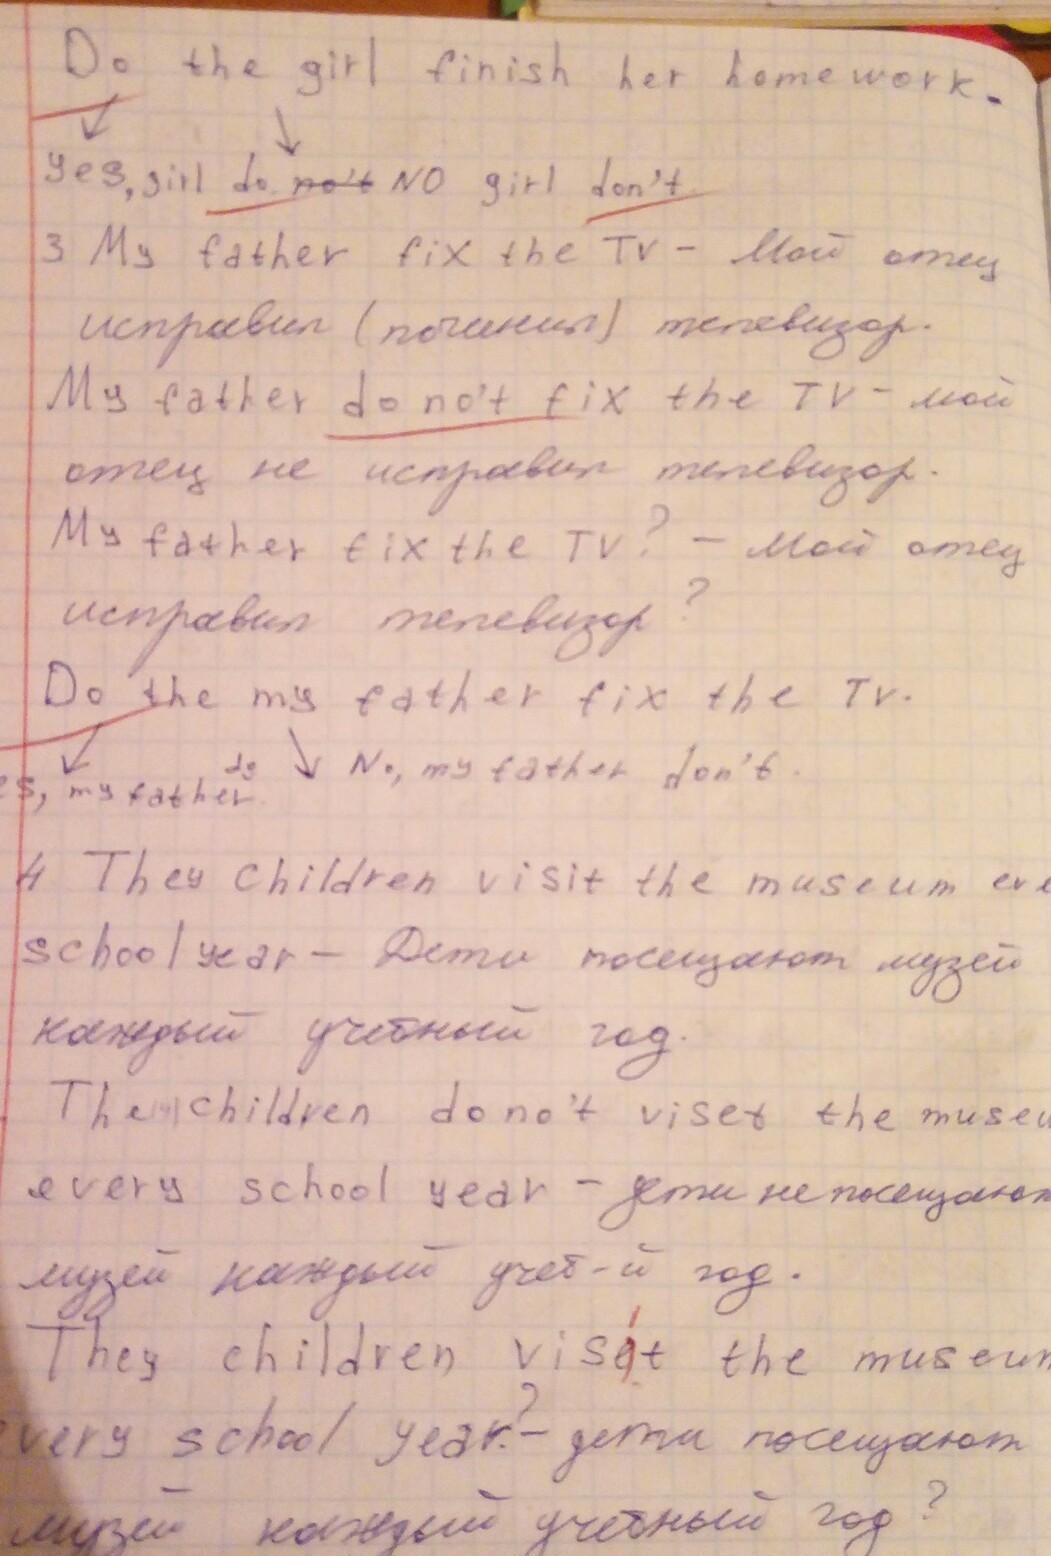 Do the girl finish her homework.
yes, girl do no't NO girl don't
3 My father fix the TV - Мой отец
исправил (починил) телевизор.
My father do no't fix the TV - мой
отец не исправил телевизор.
My father fix the TV? - Мой отец
исправил телевизор?
Do the my father fix the TV.
es, my father do No, my father don't.
4 They children visit the museum eve
school year - Дети посещают музей
каждый учебный год.
The children do no't viset the museu
every school year - дети не посещают
музей каждый учеб-й год.
They children visit the museum
very school year? - дети посещают
музей каждый учебный год?